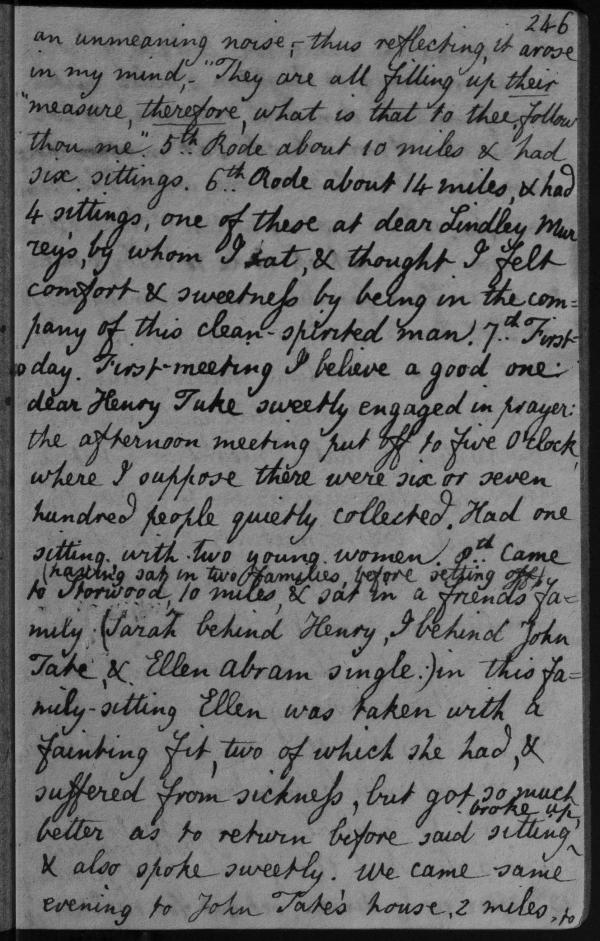 246
an unmeaning noise,- thus reflecting, it arose
in my mind,- "They are all filling up their
"measure, therefore, what is that to thee, follow
thou me". 5th.. Rode about 10 miles & had
six sittings. 6th.. Rode about 14 miles, & had
4 sittings, one of these at dear Lindley Mur
rey's, by whom I sat, & thought I felt
comfort & sweetneſs by being in the com=
pany of this clean-spirited man. 7th.. First-
day. First-meeting I believe a good one:
dear Henry Tuke sweetly engaged in prayer:
the afternoon meeting put off to five O'clock,
where I suppose there were six or seven
hundred people quietly collected. Had one
sitting with two young women. 8th.. Came
(having sat in two families, before setting off)
to Storwood, 10 miles, & sat in a friends fa=
mily (Sarah behind Henry, I behind John
Tate, & Ellen Abram single:) in this fa=
mily-sitting Ellen was taken with a
fainting fit, two of which she had, &
suffered from sickneſs, but got so much
better as to return before said sitting broke up,
& also spoke sweetly. We came same
evening to John Tate's house, 2 miles, to